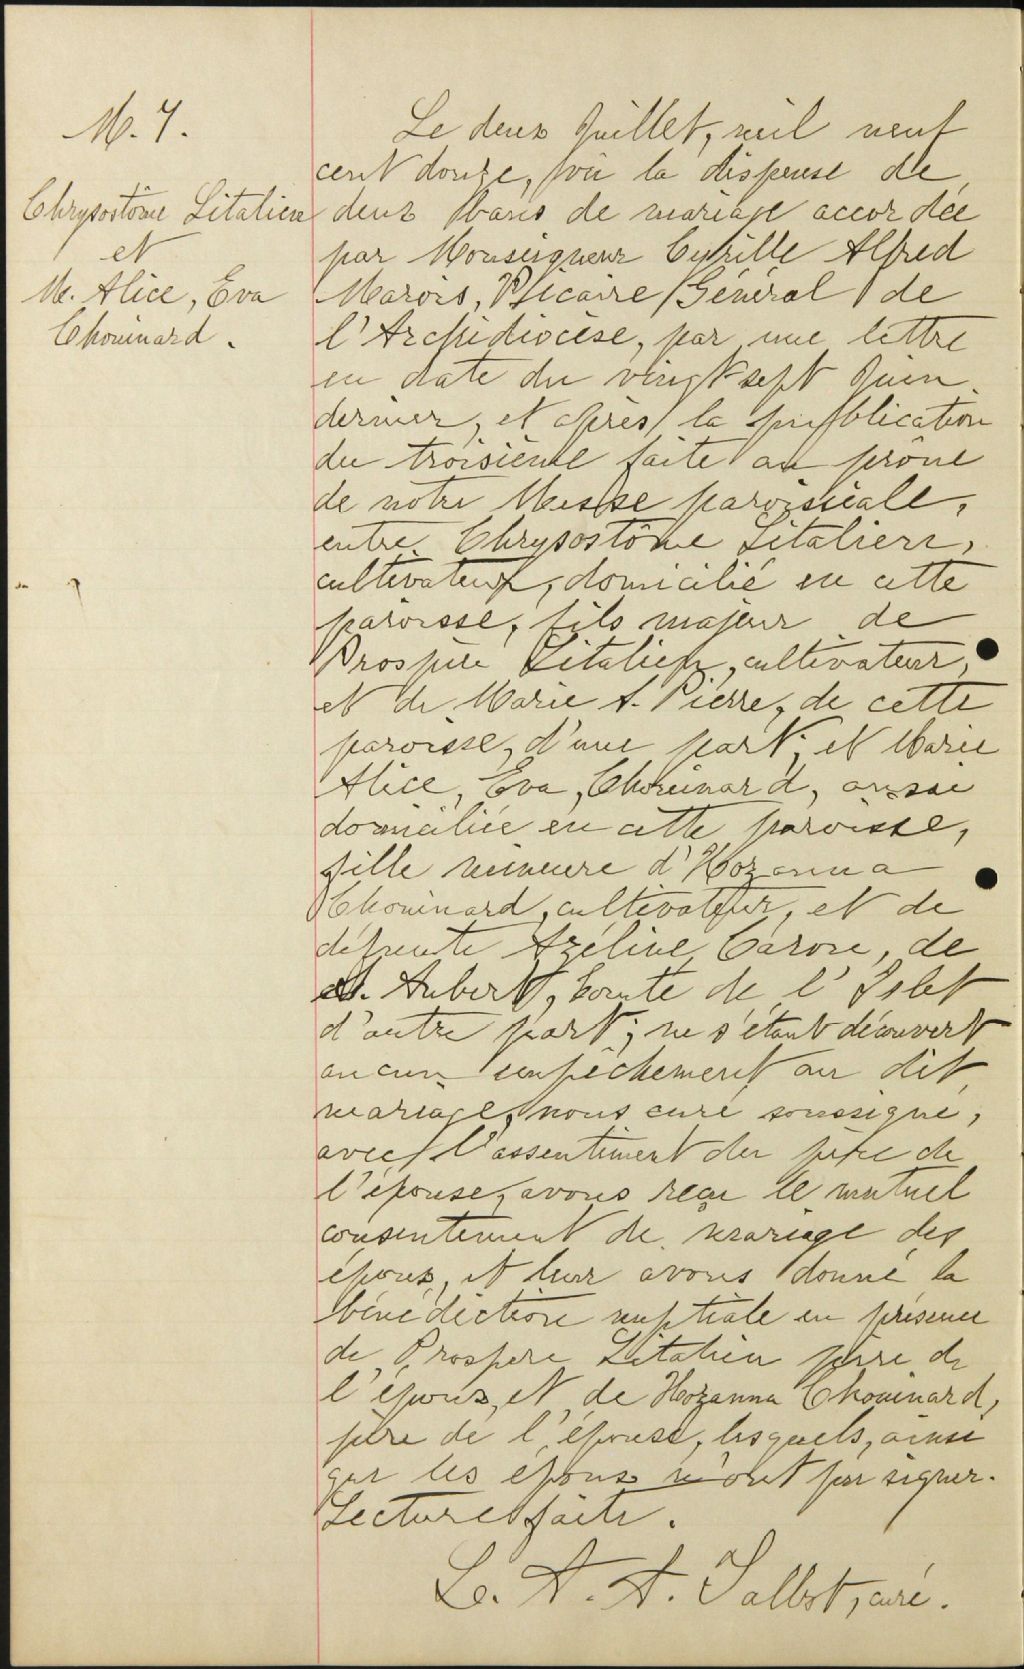 M. 7.
Chrysostôme Litalien
et
M. Alice, Eva
Chouinard.
Le deux Juillet, mil neuf
cent douze, vu la dispense de
deux bans de mariage accordée
par Monseigneur Cyrille Alfred
Marois, Vicaire Général de
l'Archidiocèse, par une lettre
en date du vingt-sept Juin
dernier, et après la publication
du troisième faite au prône
de notre Messe paroissiale,
entre Chrysostôme Litalien,
cultivateur, domicilié en cette
paroisse, fils majeur de
Prospère Litalien, cultivateur,
et de Marie S. Pierre, de cette
paroisse, d'une part; et Marie
Alice, Eva, Chouinard, aussi
domiciliée en cette paroisse,
fille mineure d'Hozanna
Chouinard, cultivateur, et de
défunte Azéline Caron, de
St. Aubert, Comté de l'Islet
d'autre part; ne s'étant découvert
aucun empêchement au dit
mariage, nous curé soussigné,
avec l'assentiment du père de
l'épouse, avons reçu le mutuel
consentement de mariage des
époux, et leur avons donné la
bénédiction nuptiale en présence
de Prospère Litalien père de
l'époux, et de Hozanna Chouinard,
père de l'épouse, lesquels, ainsi
que les époux n'ont pu signer.
Lecture faite.
L. A. A. Talbot, curé.